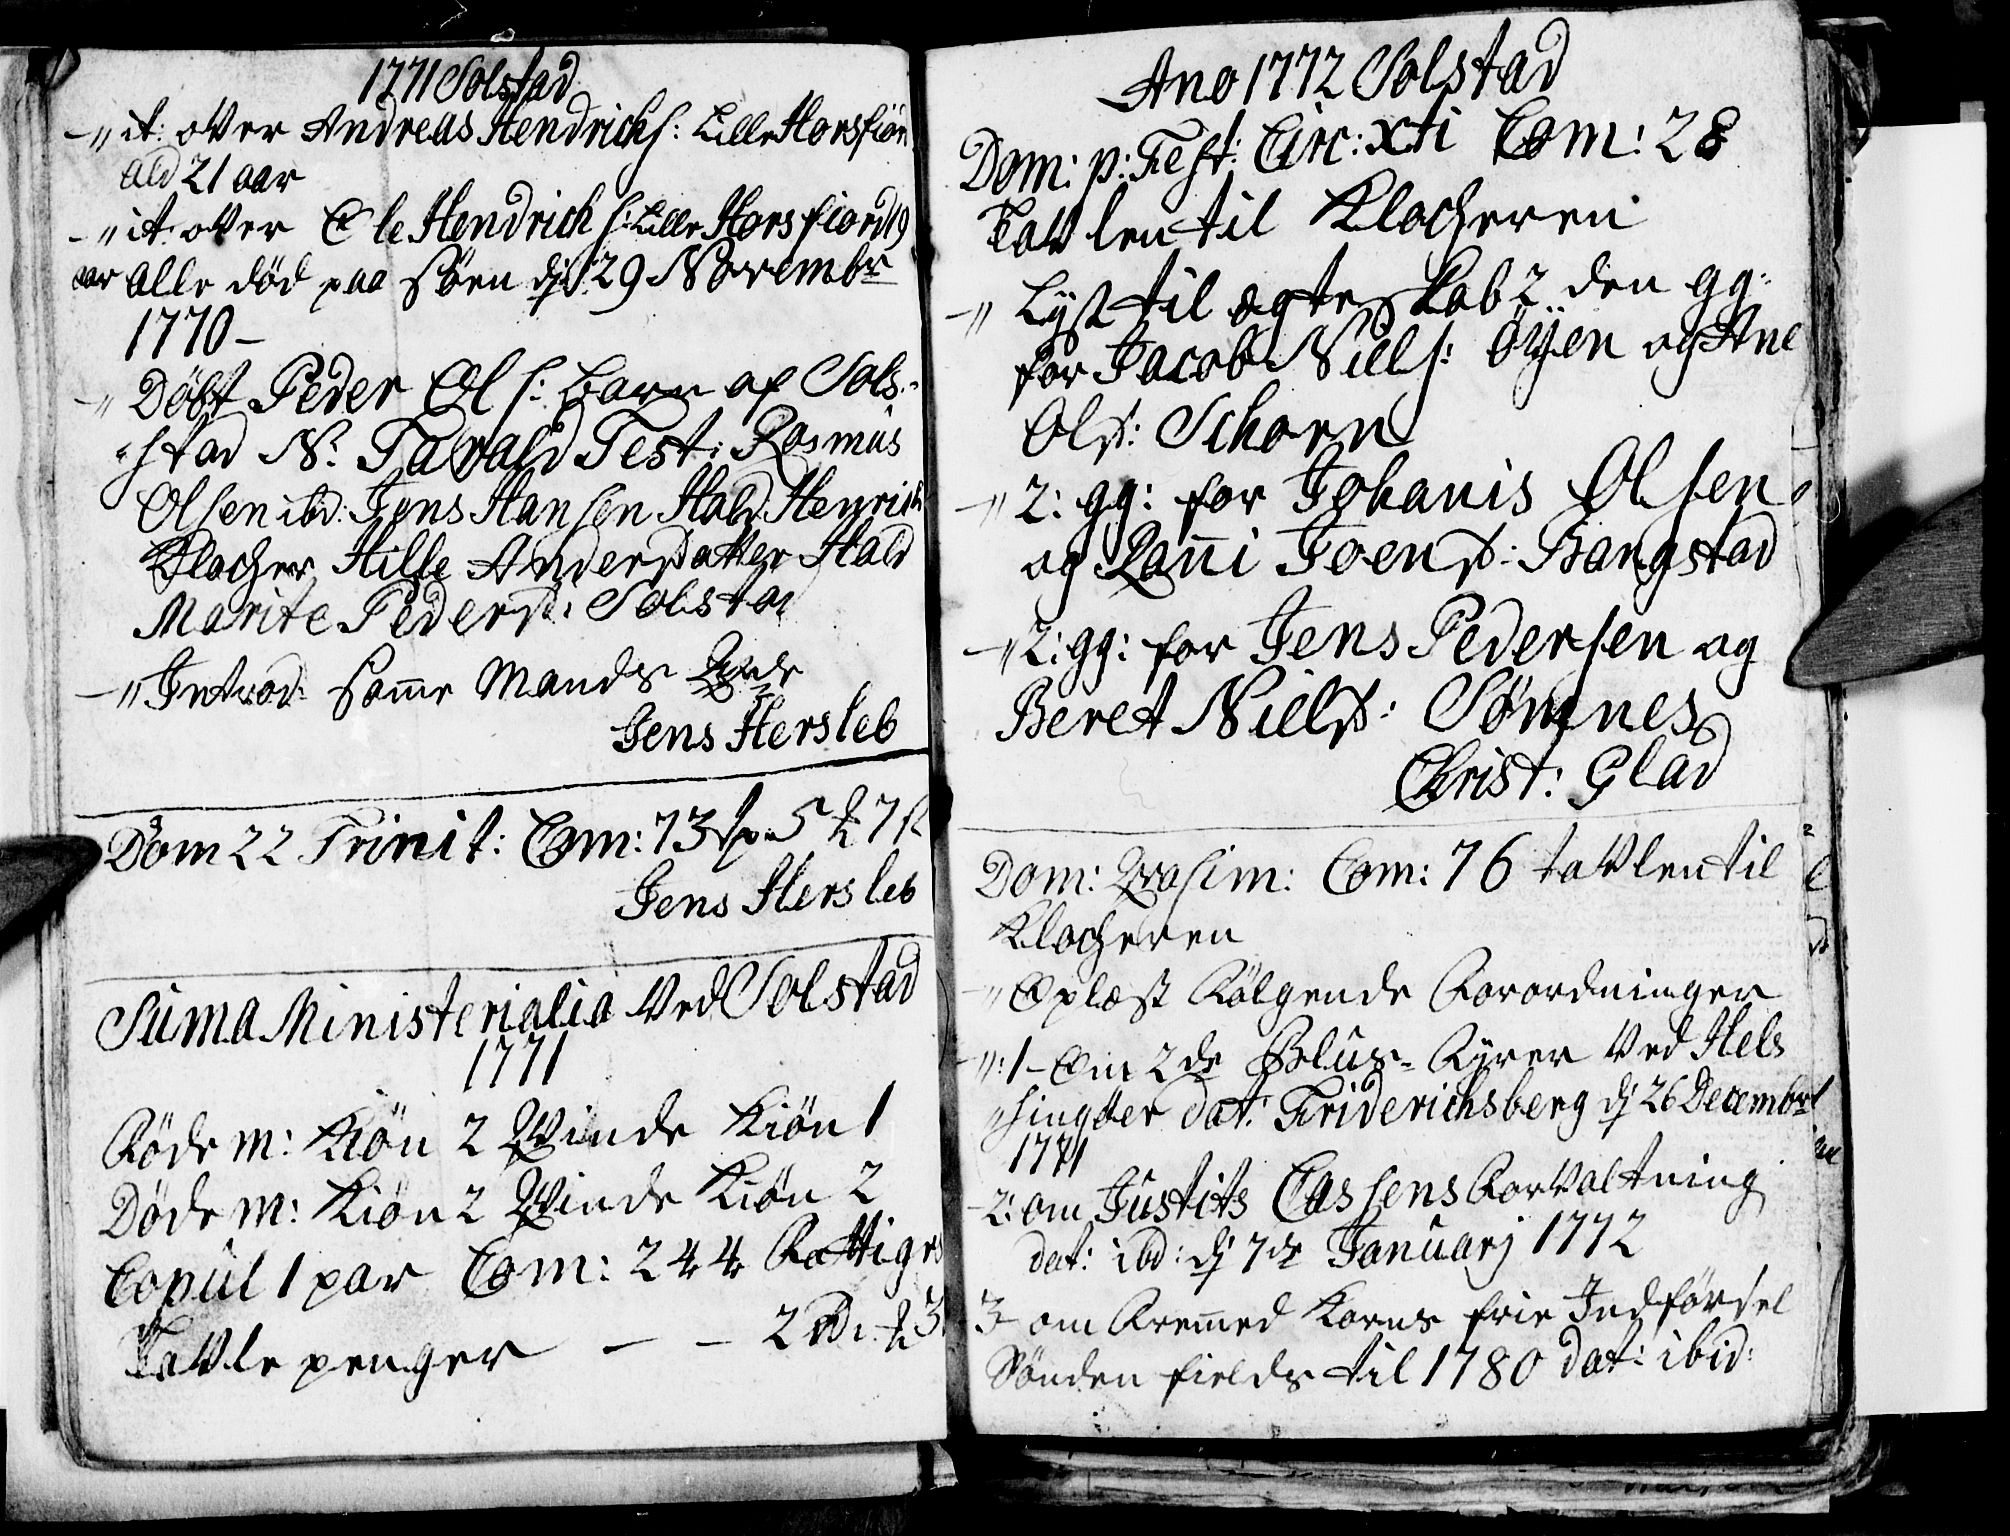 1771 Solstad
-" it: over Andreas Hendrichs: Lille Horsfiord
ald 21 aar
-" it over Ole Hendrichs: Lille Horsfiord 19
aar alle død paa Søen dj 29 Novembr
1770 -
-" Døbt Peder Ols: barn af Sol-
stad N: Tarald Test: Rasmus
Olsen ibd: Jens Hansen Hald Henrich
Klocher Hille Andersdatter Hald
Marite Pedersd: Solstad
-" Introd: samme Mands
Jens Hersleb
Dom 22 Trinit: Com: 73 5 7
Jens Hersleb
Suma Ministerialia ved Solstad
1771
Føde M: Kiøn 2 Qvinde Kiøn 1
Døde M: Kiøn 2 Qvinde Kiøn 2
Copul 1 par Com: 244 Fattiges
Tavle penger - - 2 3
Ano 1772 Solstad
Dom: p: Fest: Circ: xti Com: 28
Tavlen til Klocheren
-" Lyst til ægteskab 2 den gg:
for Jacob Niels: Öyen og Ane
Olsd: Schorn
-" 2: gg: for Johanis Olsen
og Rañi Joensd: Bangstad
-" 2: gg: for Jens Pedersen og
Beret Nielsd: Sømnes
Christ: Glad
Dom: Qvasim: Com: 76 tavlen til
Klocheren
" Oplæst Følgende Forordninger
-": 1 - Om 2de Blus-Fyrer ved Hel-
singøer dat: Friderichsberg dj 26 Decembr
1771
- 2: om Justits Cassens Forvaltning
dat: ibd: dj 7de Januarj 1772
3 om Fremmed Korns frie Indførsel
Sønden fields til 1780 dat: ibid: